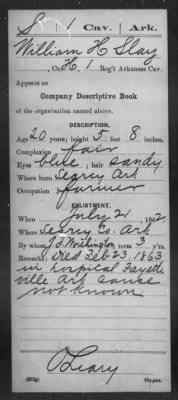 S | 1 Cav. | Ark.
William H Slay
Co. H. 1 Reg't Arkansas Cav.
Appears on
Company Descriptive Book
of the organization named above.
DESCRIPTION.
Age 20 years; height 5 feet 8 inches.
Complexion fair
Eyes blue; hair sandy
Where born Searcy Ark
Occupation farmer
ENLISTMENT.
When July 21, 1862
Where Searcy Co. Ark
By whom Worthington term 3 y'rs.
Remarks: Died Feb 23. 1863
in hospital Fayette
ville Ark cause
not known.
O'Leary
Copyist.